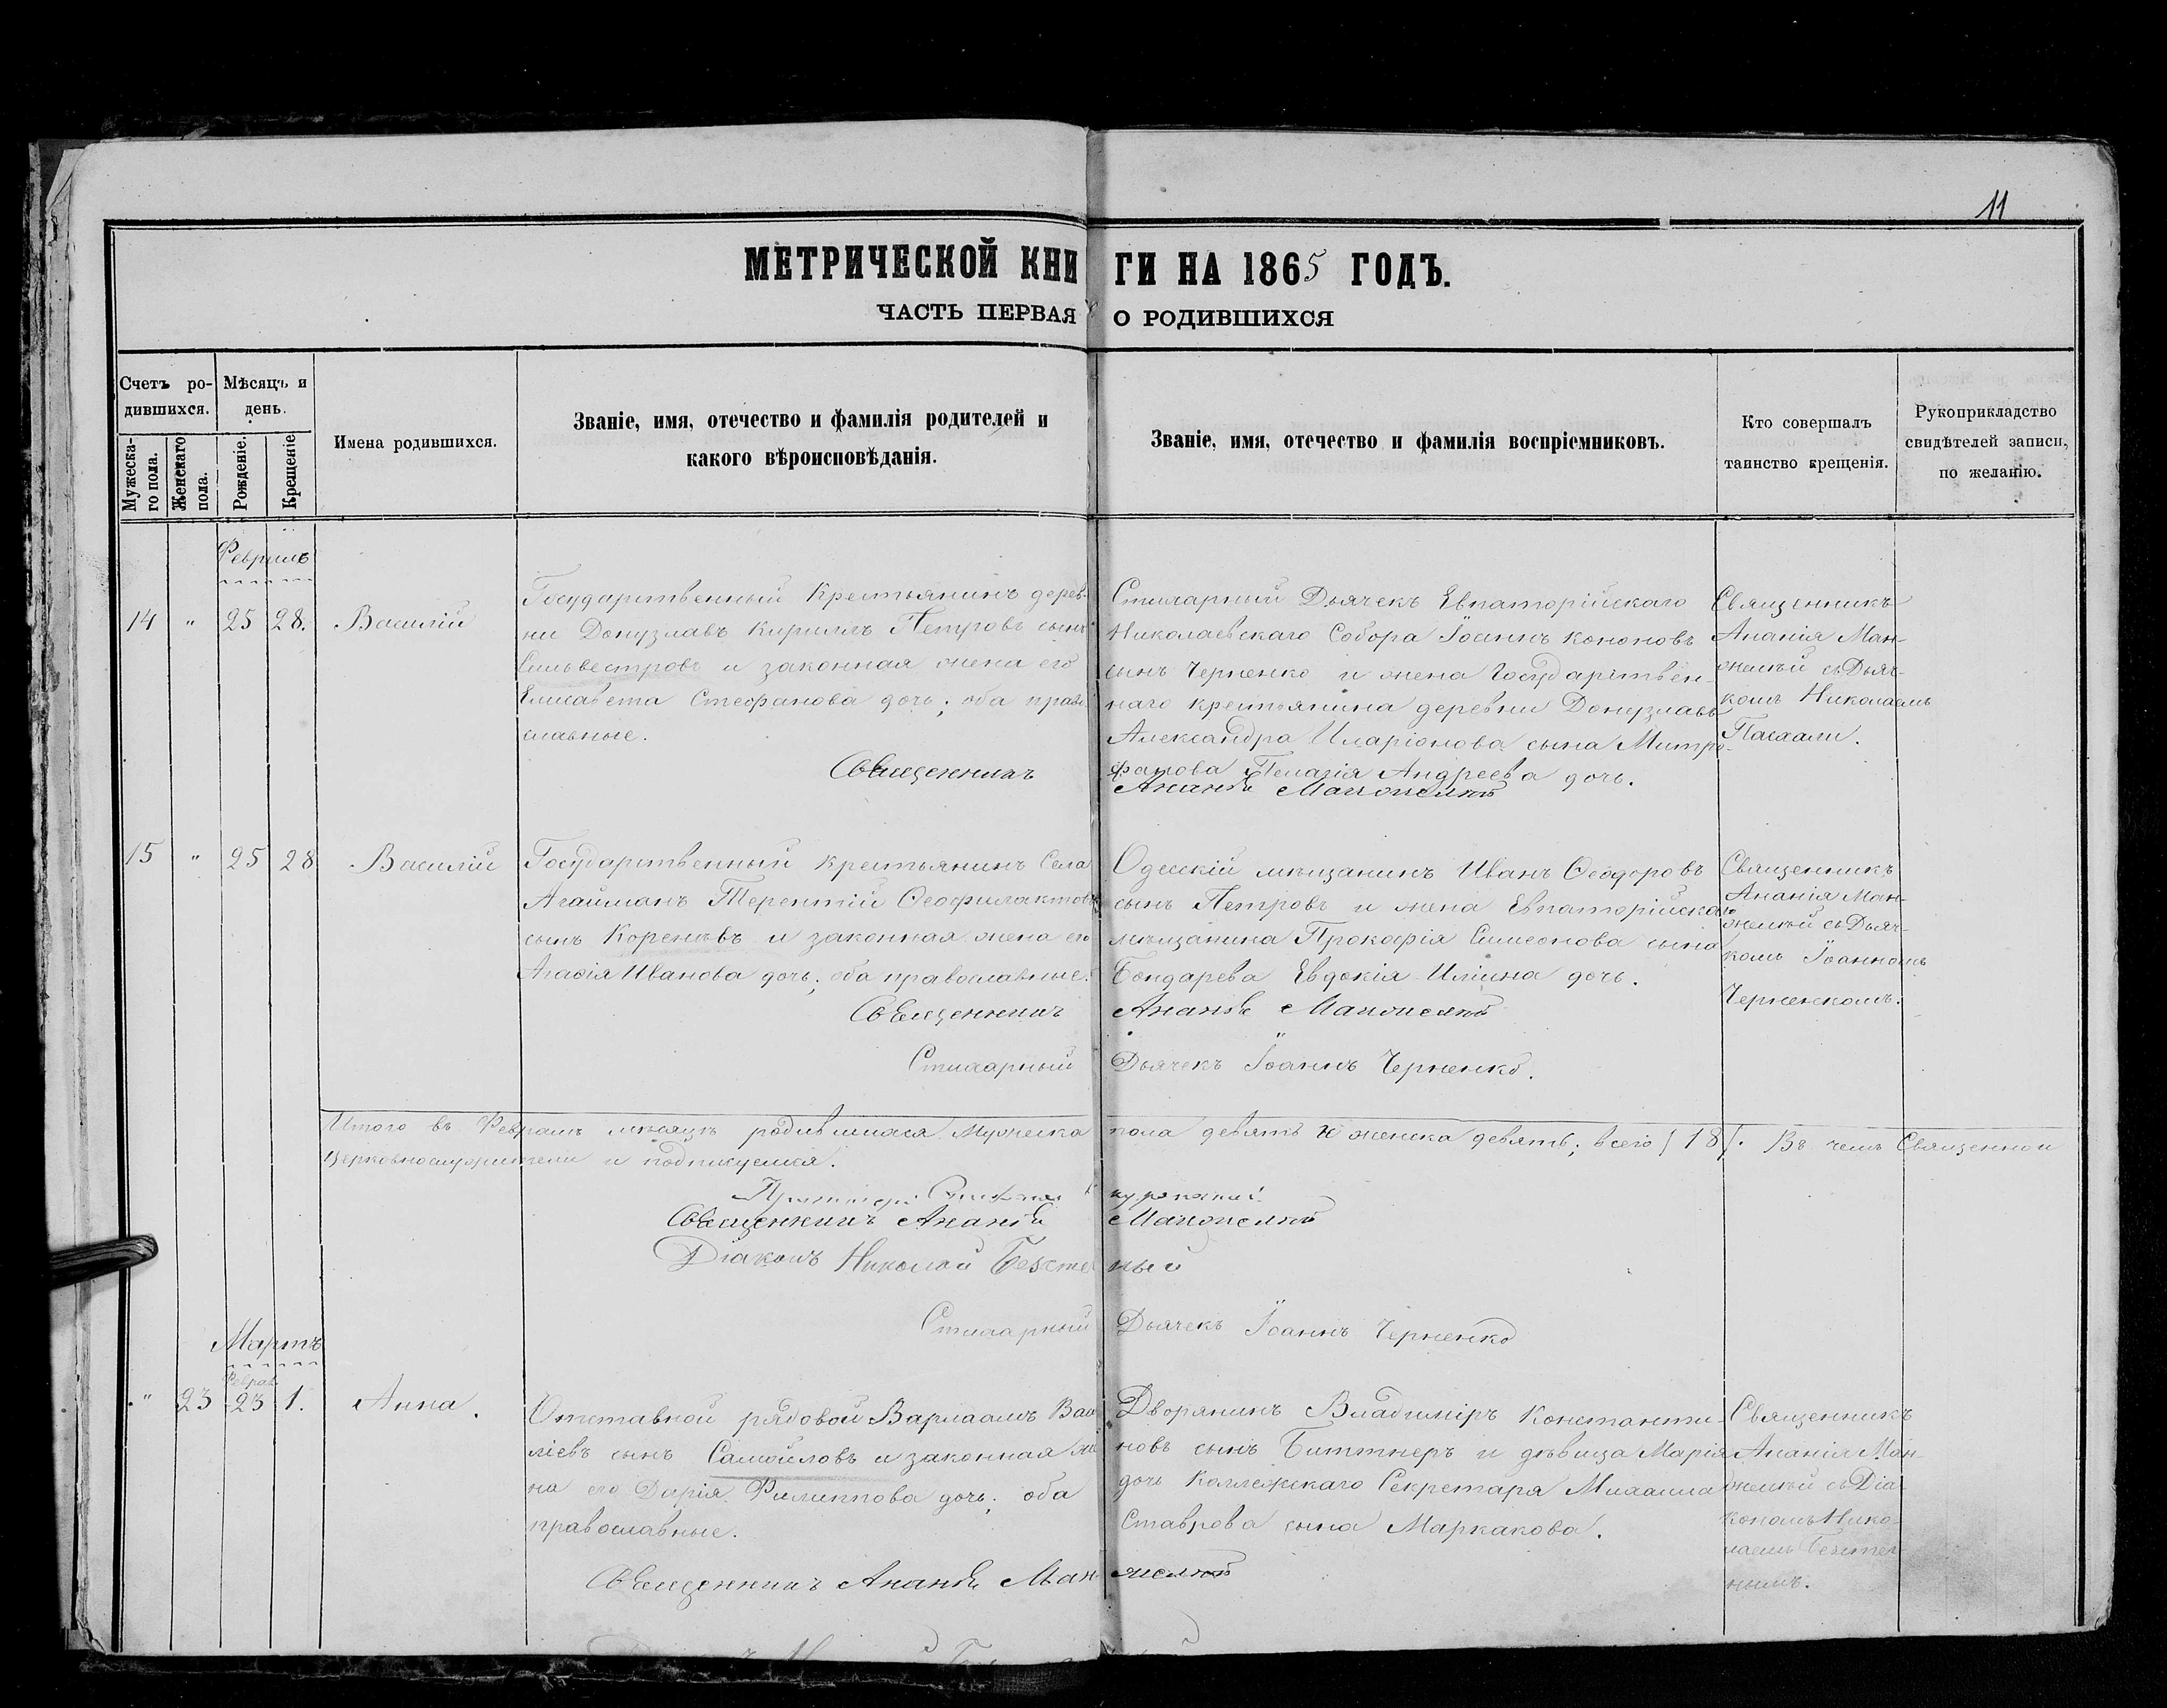 11
МЕТРИЧЕСКОЙ КНИГИ НА 1865 ГОДЪ.
ЧАСТЬ ПЕРВАЯ О РОДИВШИХСЯ
Счетъ ро-
дившихся.
Мужеска-
го пола.
Женскаго
пола.
Мѣсяцъ и
день.
Рожденіе.
Крещеніе
Имена родившихся.
Званіе, имя, отечество и фамилія родителей и
какого вѣроисповѣданія.
Званіе, имя, отечество и фамилія воспріемниковъ.
Кто совершалъ
таинство крещенія.
Рукоприкладство
свидѣтелей записи,
по желанію.
Февраль
14 " 25 28. Василій
Государственный Крестьянинъ дерев-
ни Донузлавъ Кириллъ Петровъ сынъ
Сильвестровъ и законная жена его
Елисавета Стефанова дочь; оба право
славные.
Стихарный Дьячекъ Евпаторійскаго
Николаевскаго Собора Іоаннъ Кононовъ
сынъ Черненко и жена Государствен-
наго крестьянина деревни Донузлавъ
Александра Иларіонова сына Митро-
фанова Пелагія Андреева дочь.
Священникъ
Ананія Ман-
желѣй съ Дьяч-
комъ Николаемъ
Пасхали.
Священникъ Ананія Манжелѣй
15 " 25 28 Василій
Государственный крестьянинъ Села
Агайманъ Терентій Ѳеофилактовъ
сынъ Кореневъ и законная жена его
Агаѳія Иванова дочь; оба православные.
Одесскій мѣщанинъ Иванъ Ѳеодоровъ
сынъ Петровъ и жена Евпаторійскаго
мѣщанина Прокофія Симеонова сына
Бондарева Евдокія Иліина дочь.
Священникъ
Ананія Ман-
желѣй съ Дьяч-
комъ Іоанномъ
Черненкомъ.
Священникъ Ананія Манжелѣй
Стихарный Дьячекъ Іоаннъ Черненко.
Итого въ Февралѣ мѣсяцѣ родившихся Мужеска пола девять и женска девять; всего (18). Въ чемъ Священно и
церковнослужители и подписуемся.
Священникъ Ананія Манжелѣй
Діаконъ Николай
Стихарный Дьячекъ Іоаннъ Черненко
Мартъ
Феврал.
" 23 23 1. Анна.
Отставной рядовой Варлаамъ Васи
ліевъ сынъ Самойловъ и законная же
на его Дарія Филиппова дочь; оба
православные.
Дворянинъ Владиміръ Константи-
новъ сынъ Биттнеръ и дѣвица Марія
дочь Коллежскаго Секретаря Михаила
Ставрова сына Маркакова.
Священникъ
Ананія Ман-
желѣй съ Діа-
кономъ Нико-
лаемъ
Священникъ Ананія Манжелѣй